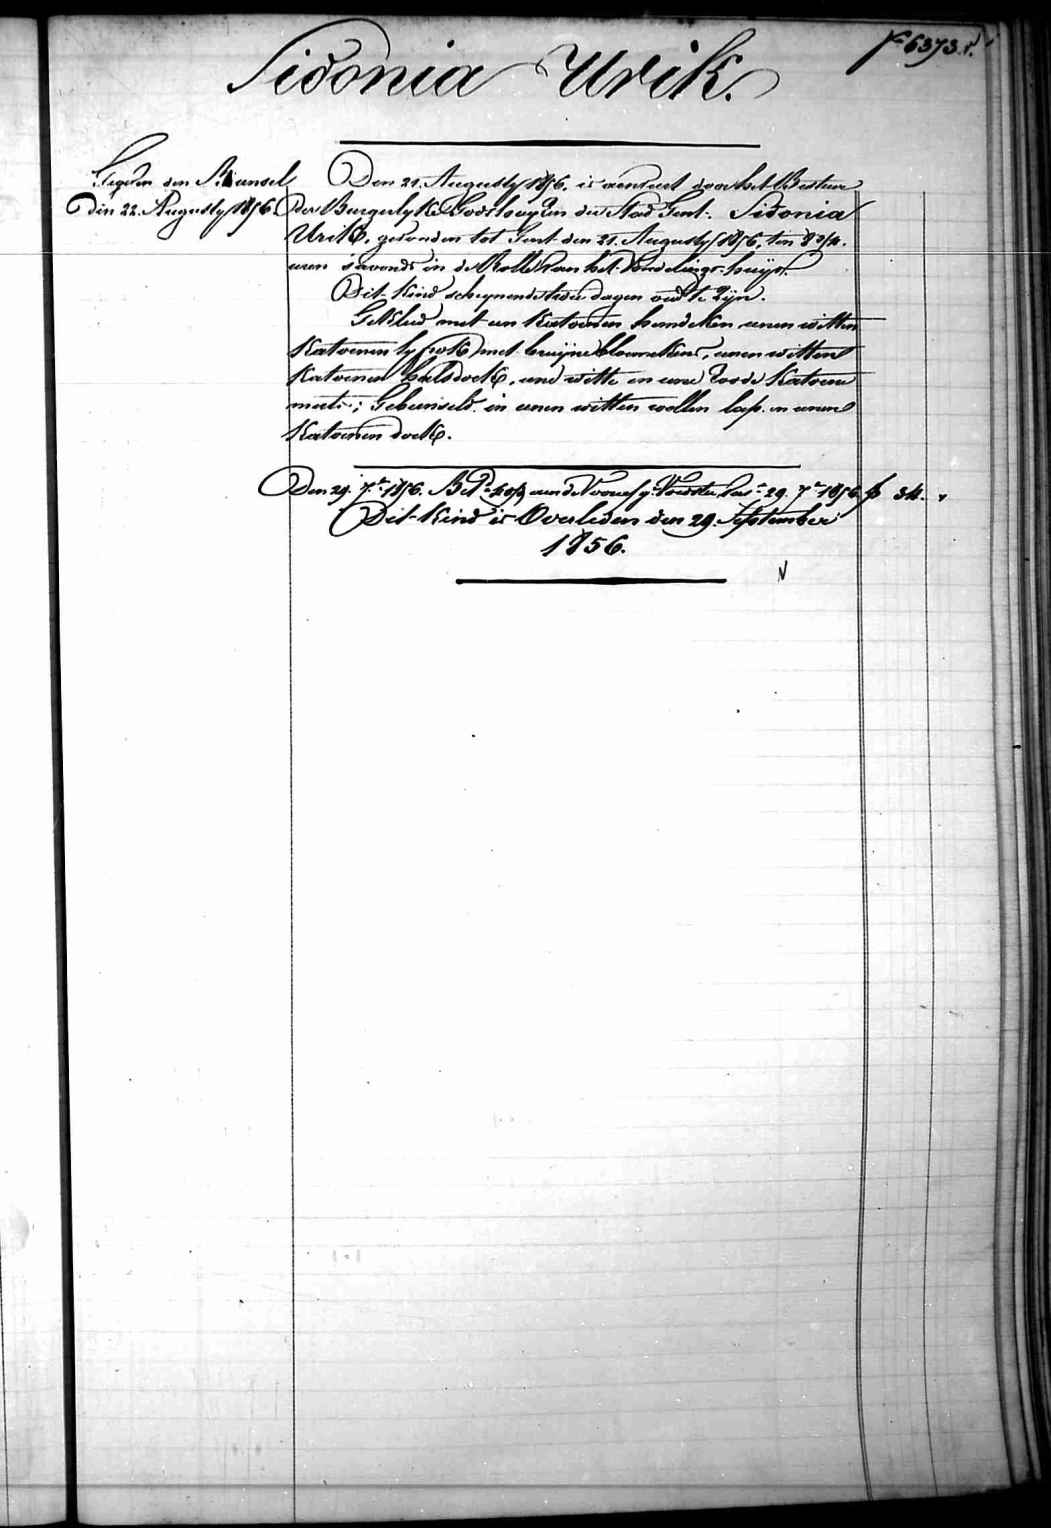 F° 6373. r.
Sidonia Urik.
Gegeven den Bundsel
Den 22. Augusty 1856.
Den 21. Augusty 1856. is aenveerd door het Bestuer
Der Burgerlyke Godshuyzen der Stad Gent. Sidonia
Urik, gevonden tot Gent den 21. Augusty 1856, ten 8 3/4.
uren s'avonds in de Rolle van het Vondelings-huys.
Dit Kind schynende twee dagen oud te Zyn.
Gekleed met een Katoenen hemdeken eenen witten
Katoenen lyfrok met bruyne bloemekens, eenen witten
Katoenen halsdoek, eene witte en eene roode Katoene
muts; Gebunseld in eenen witten wollen lap en eenen
Katoenen doek.
Den 29. 7.re 1856. Bet. aen de Voedster 29. 7.re 1856 34.
Dit Kind is Overleden den 29. September
1856.